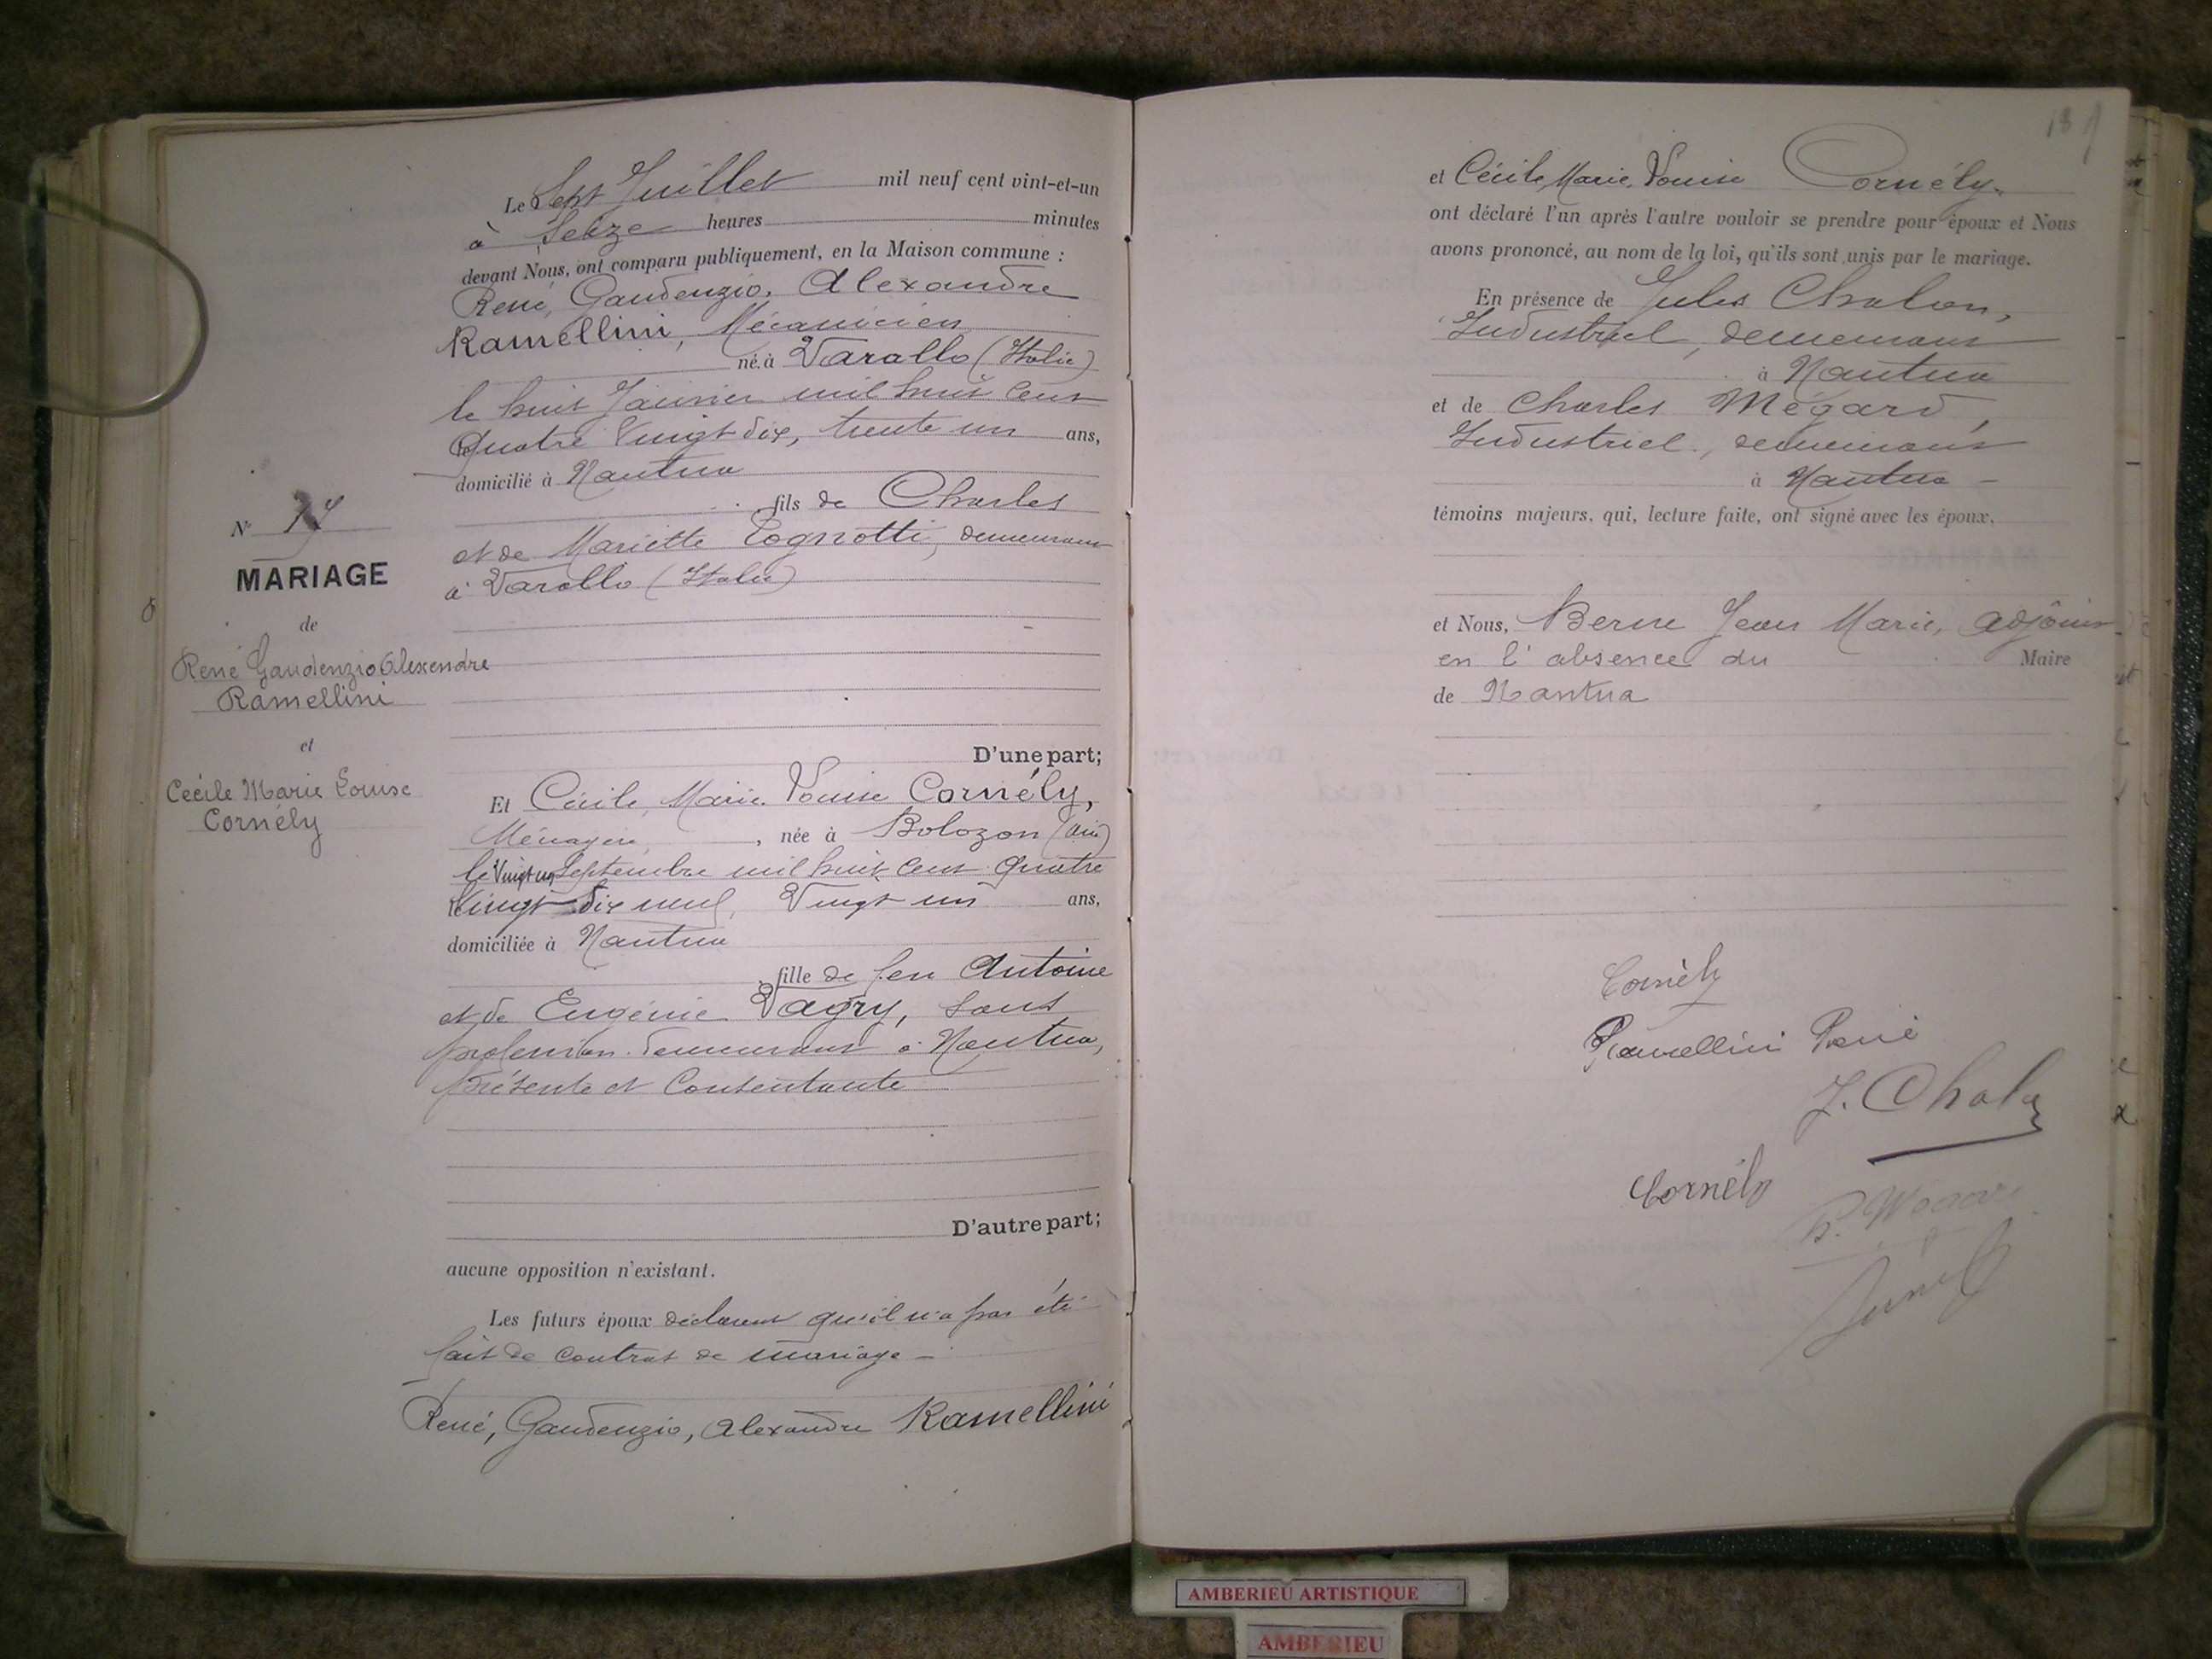 Le Sept Juillet mil neuf cent vint-et-un
à Seize heures minutes
devant Nous, ont comparu publiquement, en la Maison commune :
René, Gaudenzio, Alexandre
Ramellini, Mécanicien
né à Varallo (Italie)
le huit Janvier mil huit cent
quatre Vingt dix, trente un ans,
domicilié à Nantua
fils de Charles
et de Mariette Tognotti, demeurant
à Varallo (Italie)
D'une part;
Et Cécile, Marie Louise Cornély,
Ménagère, née à Bolozon (Ain)
le Vingt un Septembre mil huit cent quatre
Vingt Dix neuf, Vingt un ans,
domiciliée à Nantua
fille de feu Antoine
et de Eugénie Vagry, sans
profession demeurant à Nantua,
présente et Consentante
D'autre part;
aucune opposition n'existant.
Les futurs époux déclarent qu'il n'a pas été
fait de contrat de mariage -
René, Gaudenzio, Alexandre Ramellini
N°
MARIAGE
de
René Gaudenzio Alexendre
Ramellini
et
Cécile Marie Louise
Cornély
et Cécile, Marie, Louise Cornély
ont déclaré l'un après l'autre vouloir se prendre pour époux et Nous
avons prononcé, au nom de la loi, qu'ils sont unis par le mariage.
En présence de Jules Chalon,
Industriel, demeurant
à Nantua
et de Charles Mégard,
Industriel, demeurant
à Nantua -
témoins majeurs, qui, lecture faite, ont signé avec les époux.
et Nous, Berne Jean Marie, adjoint
en l'absence du Maire
de Nantua
Cornély
Ramellini René
J. Chalon
Cornély
AMBERIEU ARTISTIQUE
AMBERIEU